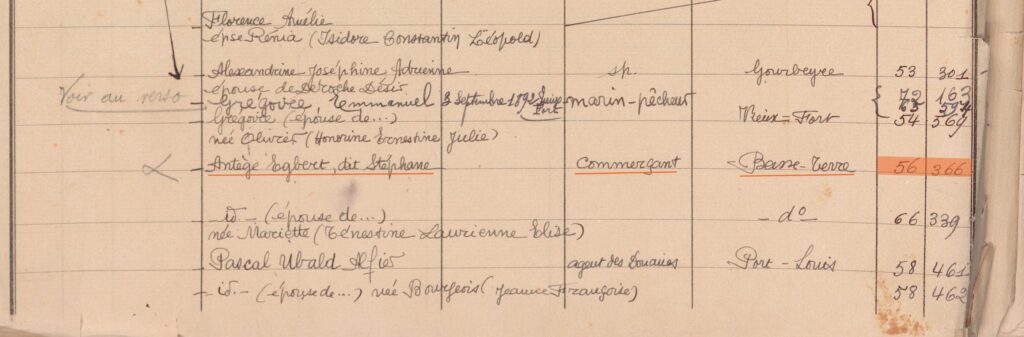 Florence Amélie
épse Rénia (Isidore Constantin Léopold)
Alexandrine Joséphine Adrienne sp. Gourbeyre 53 301
épouse de Deroche Désir 72 163
Voir au verso Grégoire, Emmanuel 3 Septembre 1892 Vieux Fort marin-pêcheur 63 594
Grégoire (épouse de...) Vieux-Fort 54 569
née Olivier (Honorine Ernestine Julie)
Antège Egbert, dit Stéphane commerçant Basse-Terre 56 366
- id. - (épouse de...) - do - 66 339
née Mariette (Ténestine Laurienne Elise)
Pascal Ubald Alfier agent des Douanes Port-Louis 58 461
- id. - (épouse de...) née Bourgeois (Jeanne Françoise) 58 462